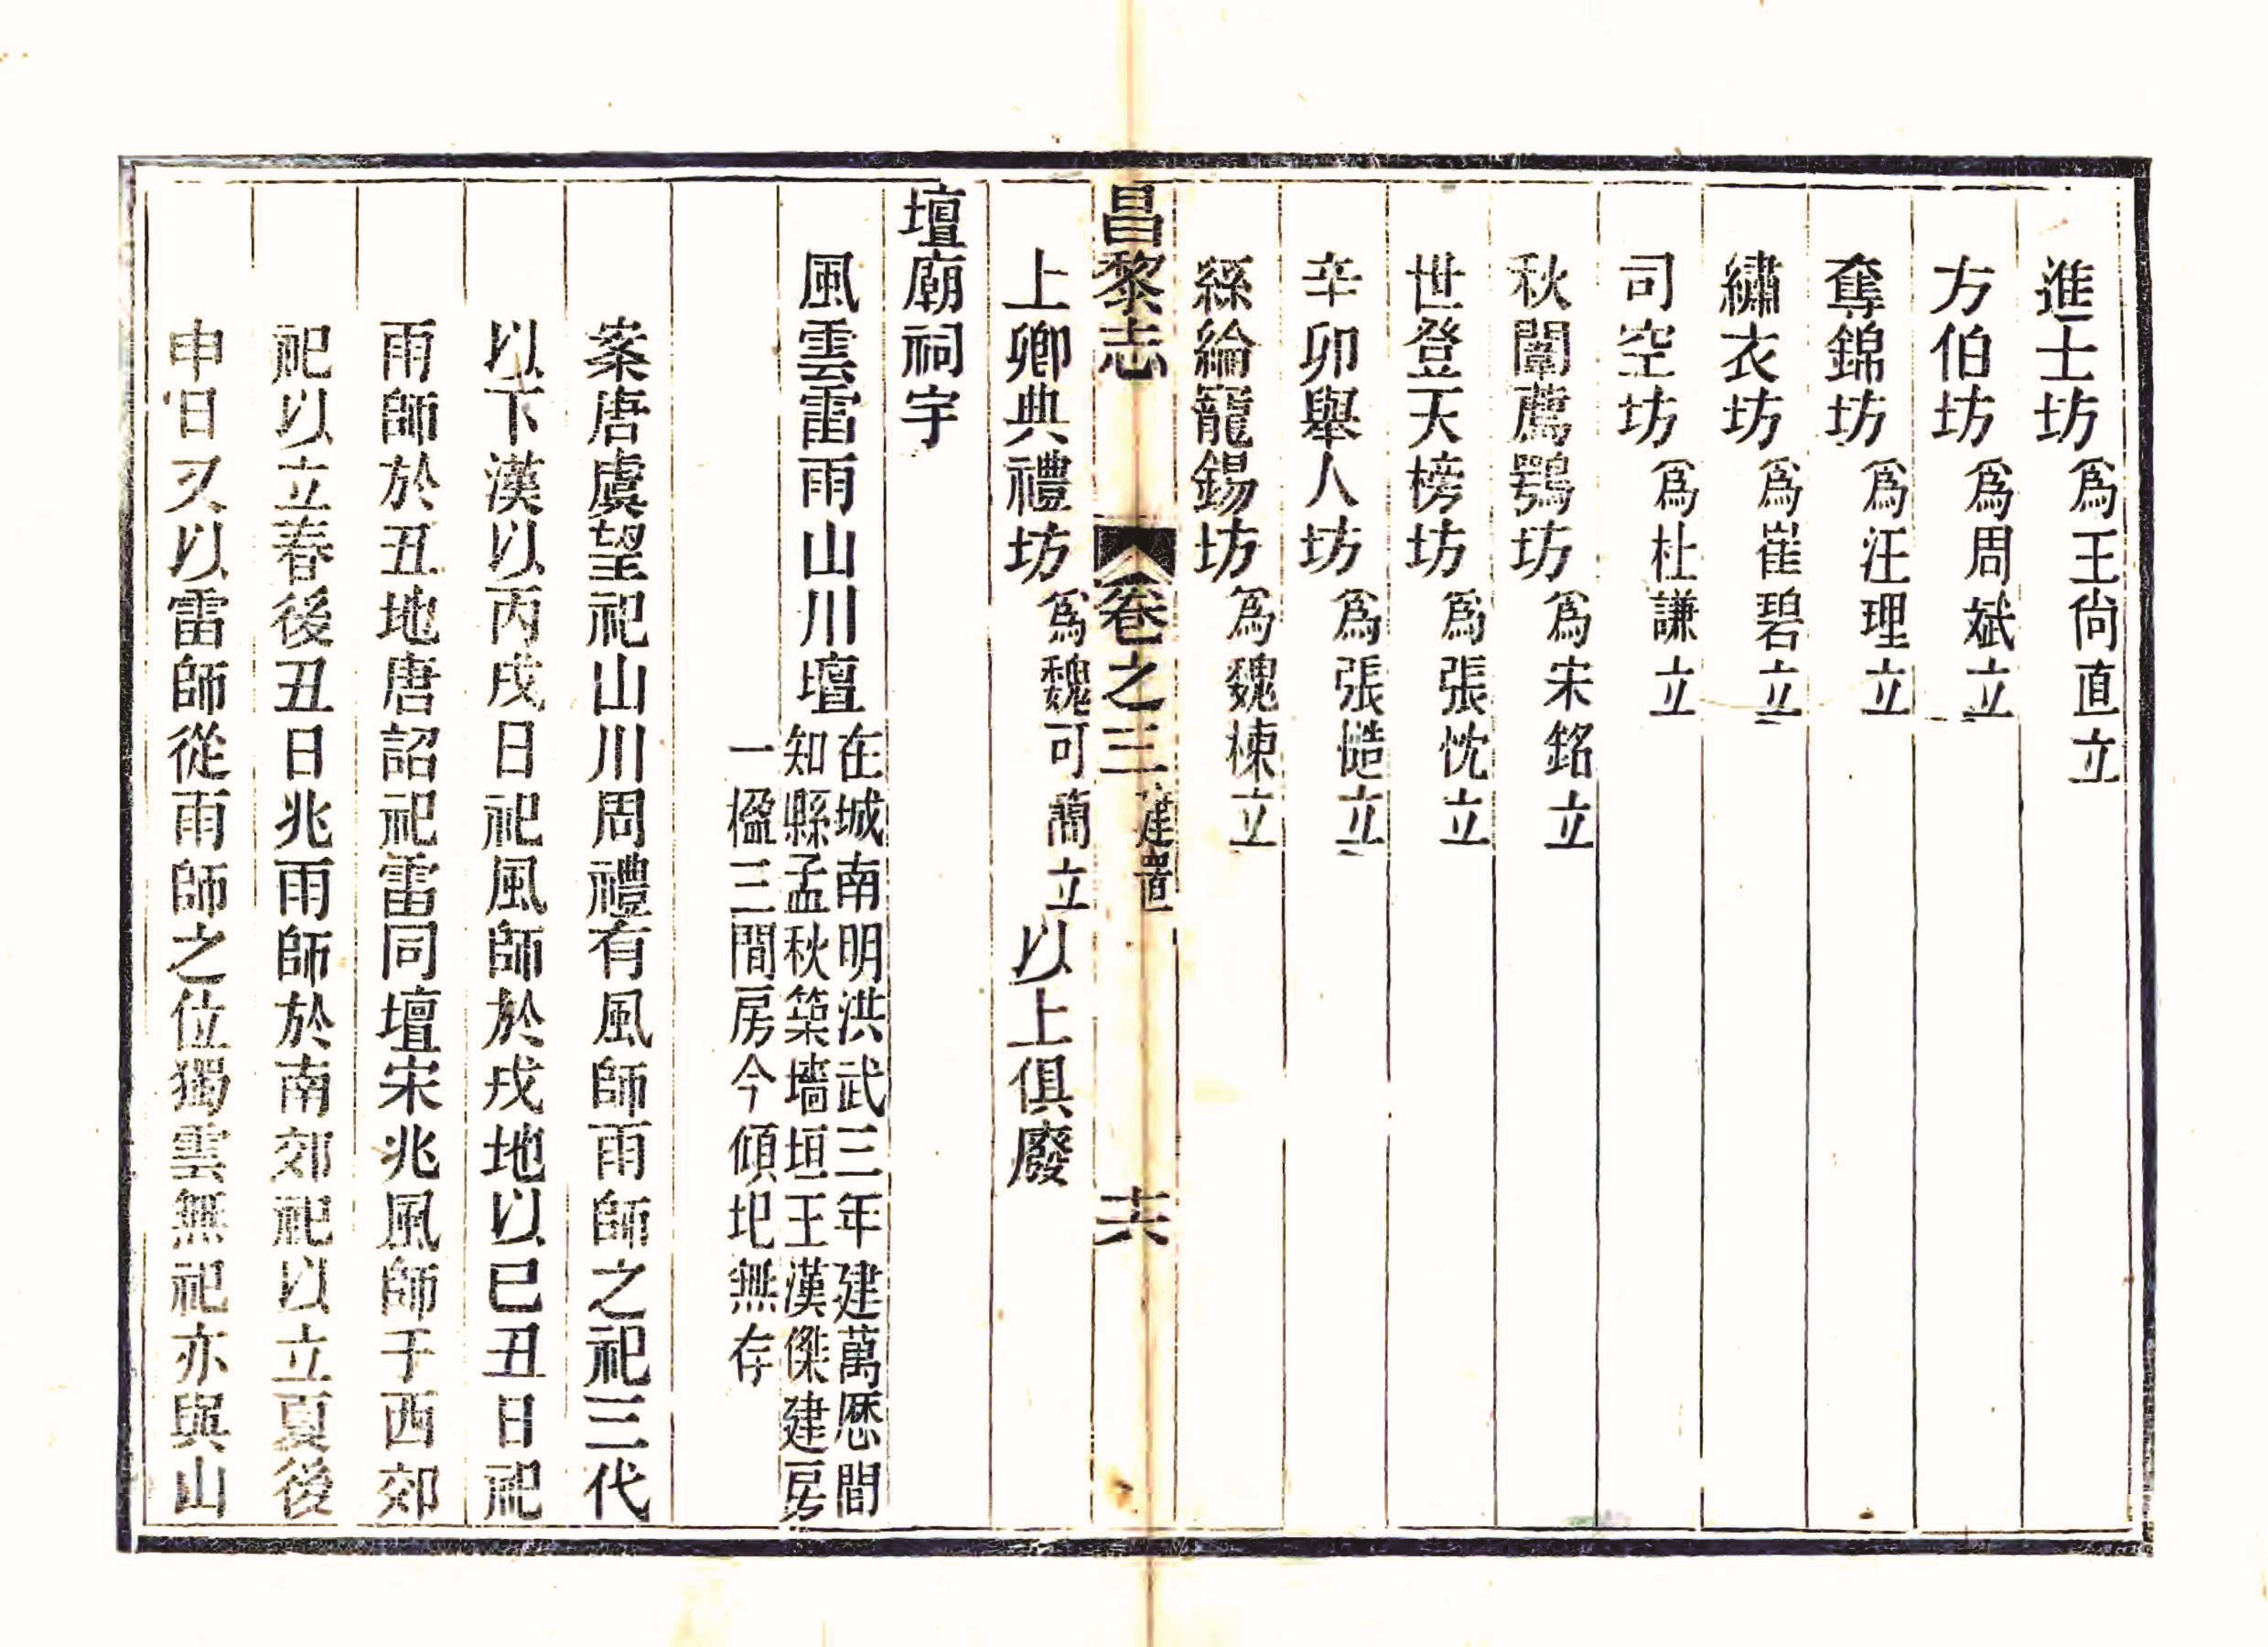 進士坊爲王尙直立
方伯坊爲周斌立
奪錦坊爲汪理立
繡衣坊爲崔碧立
司空坊爲杜謙立
秋闈薦鶚坊爲宋銘立
世登天榜坊爲張忱立
辛卯舉人坊爲張慥立
絲綸寵錫坊爲魏棟立
昌黎志 卷之三 建置 十六
上卿典禮坊爲魏可蕳立以上俱廢
壇廟祠宇
風雲雷雨山川壇在城南明洪武三年建萬厯間
知縣孟秋築墻垣王漢傑建房
一楹三間房今傾圯無存
案唐虞望祀山川周禮有風師雨師之祀三代
以下漢以丙戌日祀風師於戌地以已丑日祀
雨師於丑地唐詔祀雷同壇宋兆風師于西郊
祀以立春後丑日兆雨師於南郊祀以立夏後
申日又以雷師從雨師之位獨雲無祀亦與山